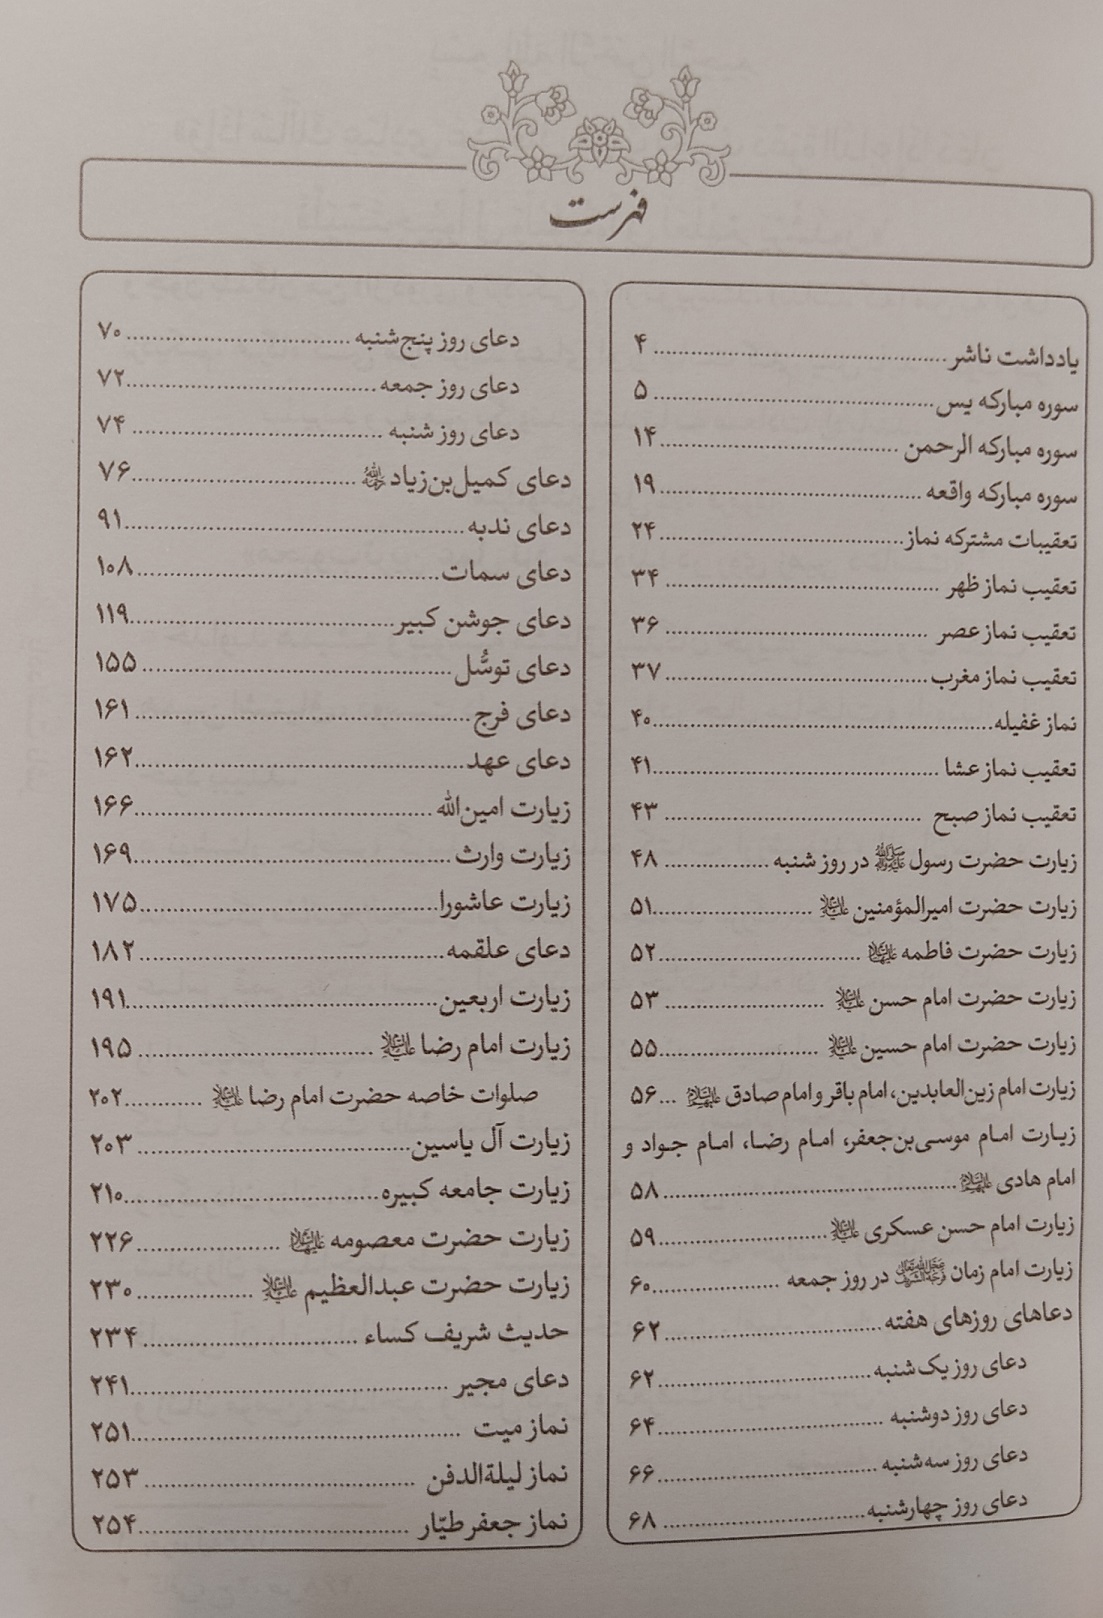 فهرست
یادداشت ناشر ........ ۴
سوره مبارکه یس ........ ۵
سوره مبارکه الرحمن ........ ۱۴
سوره مبارکه واقعه ........ ۱۹
تعقیبات مشترکه نماز ........ ۲۴
تعقیب نماز ظهر ........ ۳۴
تعقیب نماز عصر ........ ۳۶
تعقیب نماز مغرب ........ ۳۷
نماز غفیله ........ ۴۰
تعقیب نماز عشا ........ ۴۱
تعقیب نماز صبح ........ ۴۳
زیارت حضرت رسول ﷺ در روز شنبه ........ ۴۸
زیارت حضرت امیرالمؤمنین علیه‌السلام ........ ۵۱
زیارت حضرت فاطمه علیهاالسلام ........ ۵۲
زیارت حضرت امام حسن علیه‌السلام ........ ۵۳
زیارت حضرت امام حسین علیه‌السلام ........ ۵۵
زیارت امام زین‌العابدین، امام باقر و امام صادق علیهم‌السلام ... ۵۶
زیارت امام موسی‌بن‌جعفر، امام رضا، امام جواد و
امام هادی علیهم‌السلام ........ ۵۸
زیارت امام حسن عسکری علیه‌السلام ........ ۵۹
زیارت امام زمان عجل‌الله‌تعالی‌فرجه‌الشریف در روز جمعه ........ ۶۰
دعاهای روزهای هفته ........ ۶۲
دعای روز یک‌شنبه ........ ۶۲
دعای روز دوشنبه ........ ۶۴
دعای روز سه‌شنبه ........ ۶۶
دعای روز چهارشنبه ........ ۶۸
دعای روز پنج‌شنبه ........ ۷۰
دعای روز جمعه ........ ۷۲
دعای روز شنبه ........ ۷۴
دعای کمیل‌بن‌زیاد رحمه‌الله ........ ۷۶
دعای ندبه ........ ۹۱
دعای سمات ........ ۱۰۸
دعای جوشن کبیر ........ ۱۱۹
دعای توسُّل ........ ۱۵۵
دعای فرج ........ ۱۶۱
دعای عهد ........ ۱۶۲
زیارت امین‌الله ........ ۱۶۶
زیارت وارث ........ ۱۶۹
زیارت عاشورا ........ ۱۷۵
دعای علقمه ........ ۱۸۲
زیارت اربعین ........ ۱۹۱
زیارت امام رضا علیه‌السلام ........ ۱۹۵
صلوات خاصه حضرت امام رضا علیه‌السلام ........ ۲۰۲
زیارت آل یاسین ........ ۲۰۳
زیارت جامعه کبیره ........ ۲۱۰
زیارت حضرت معصومه علیهاالسلام ........ ۲۲۶
زیارت حضرت عبدالعظیم علیه‌السلام ........ ۲۳۰
حدیث شریف کساء ........ ۲۳۴
دعای مجیر ........ ۲۴۱
نماز میت ........ ۲۵۱
نماز لیلة‌الدفن ........ ۲۵۳
نماز جعفر طیّار ........ ۲۵۴